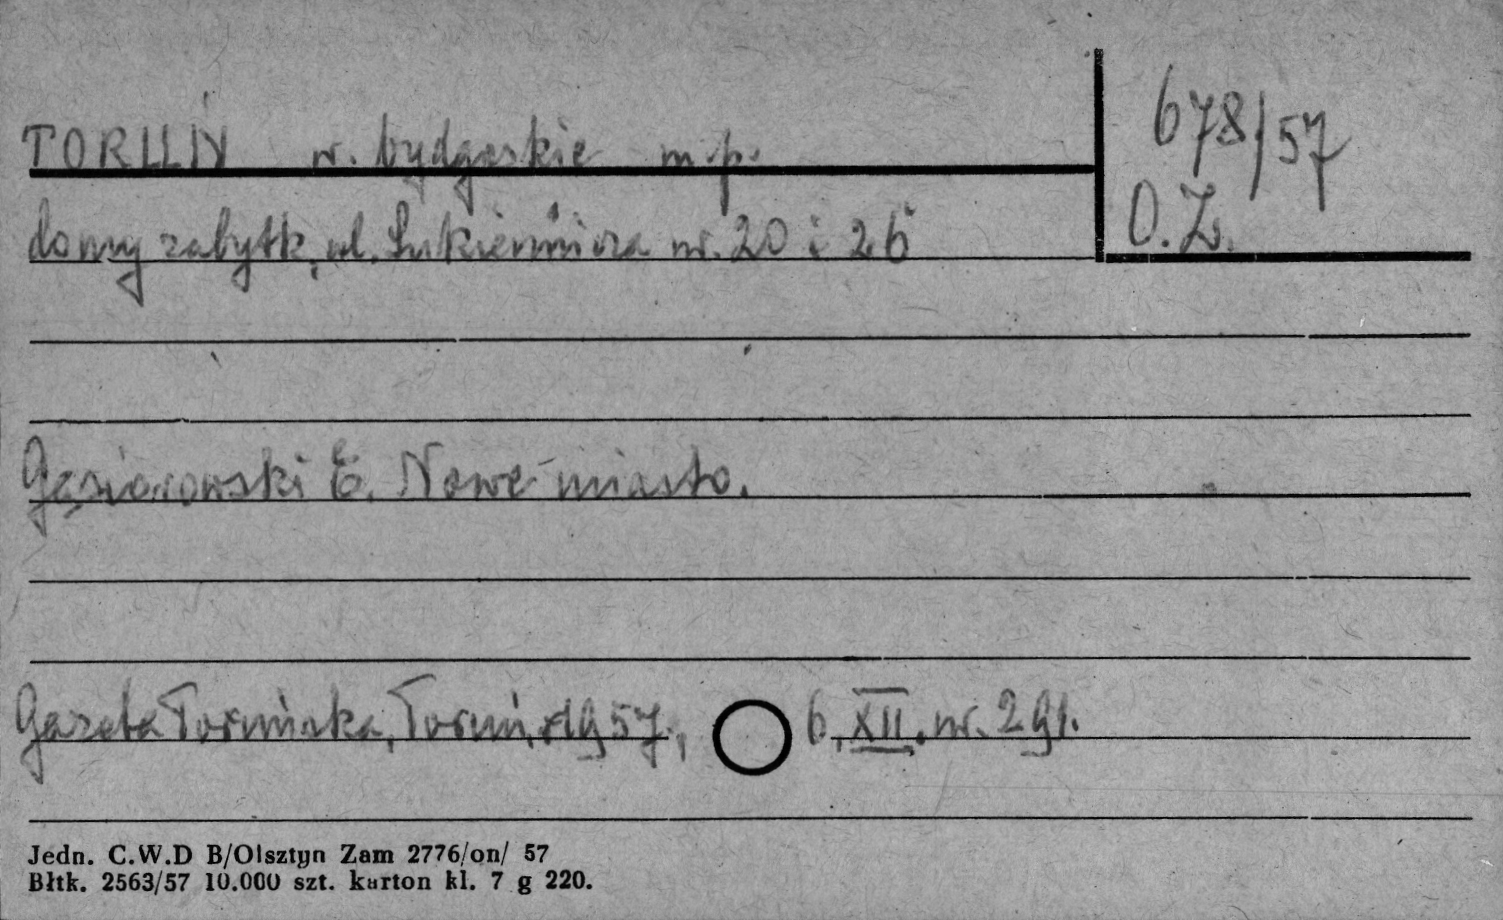 TORUŃ w. bydgoskie m.p.
678/57
O.Z.
domy zabytk. ul. Sukiennicza nr. 20 i 26
Gąsiorowski E. Nowe miasto.
Gazeta Toruńska, Toruń, 1957., 6. XII. nr. 291.
Jedn. C.W.D B/Olsztyn Zam 2776/on/ 57
Błtk. 2563/57 10.000 szt. karton kl. 7 g 220.